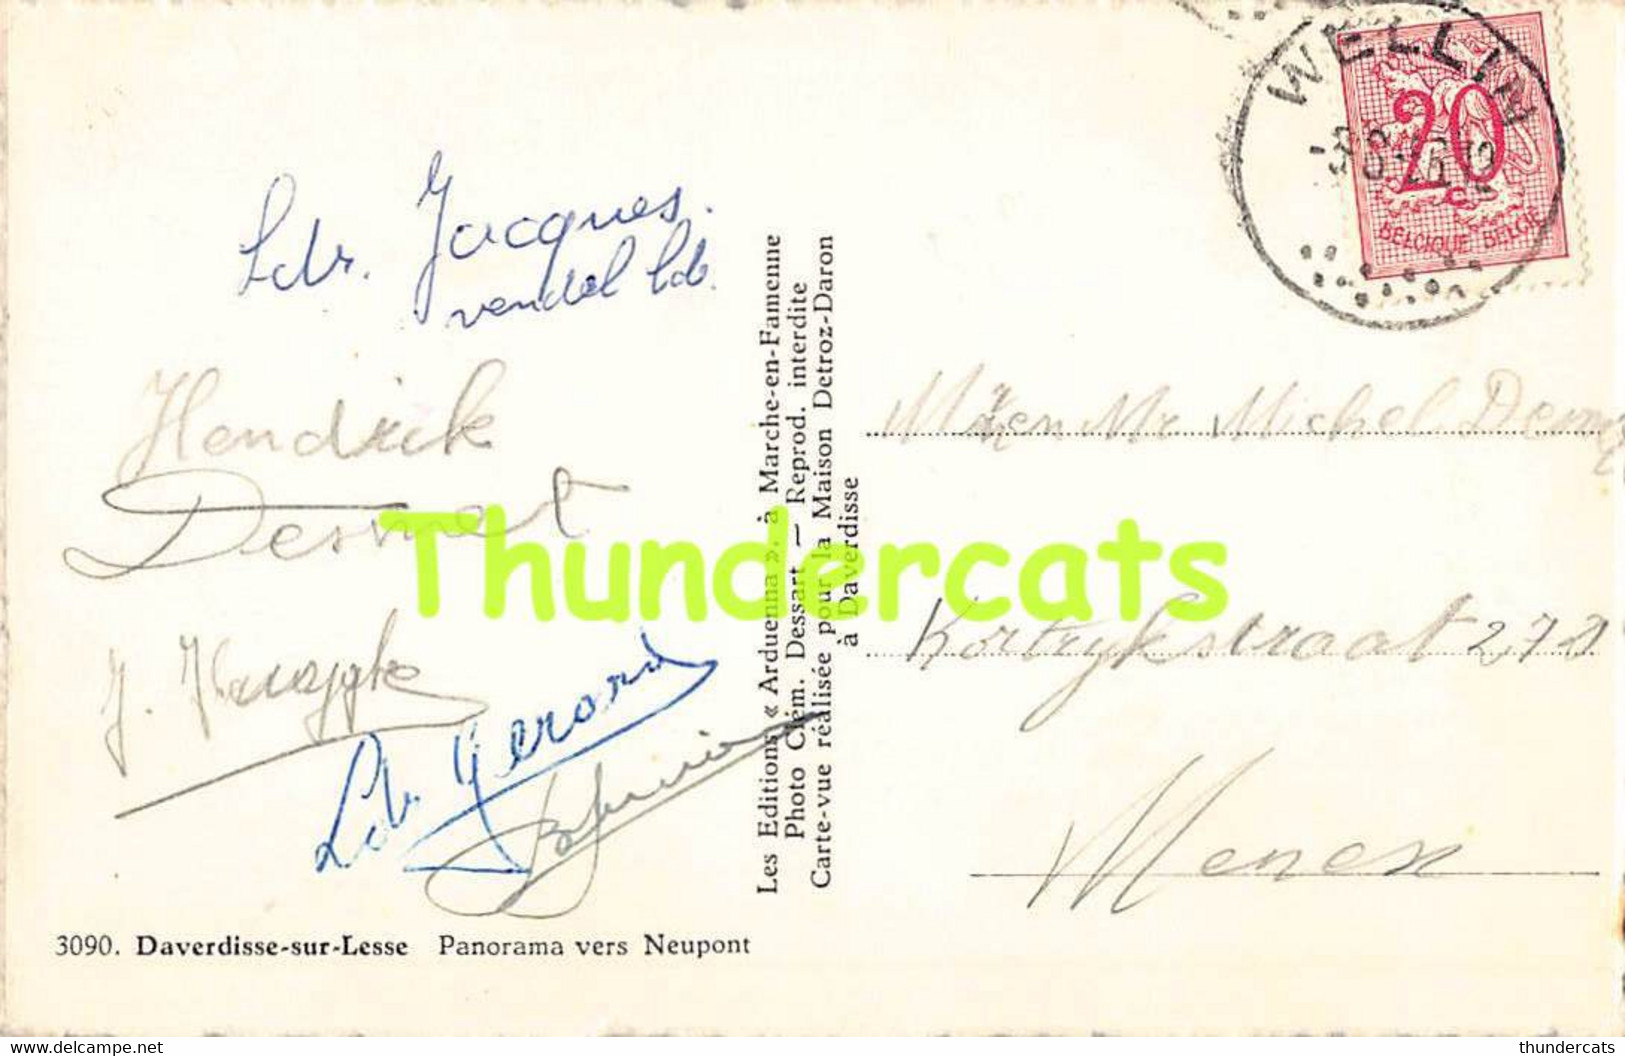 WELLIN
20
BELGIQUE BELGIE
Ldr. Jacques.
vendel ldr.
Hendrik
Desmet
Thundercats
J.
Ldr. Gerard
Les Editions « Arduenna ». à Marche-en-Famenne
Photo Clém. Dessart — Reprod. interdite
Carte-vue réalisée pour la Maison Detroz-Daron
à Daverdisse
Mr Michel
Kortrykstraat 278
Menen
3090. Daverdisse-sur-Lesse Panorama vers Neupont
delcampe.net
thundercats